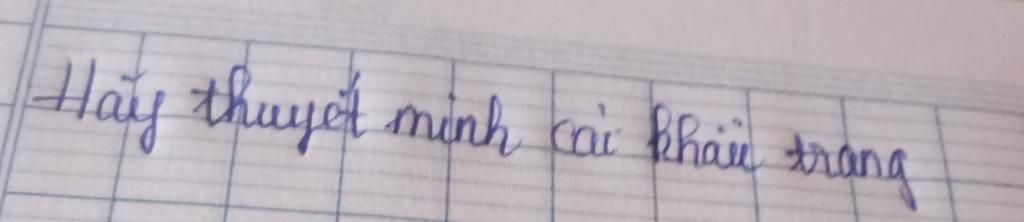 Hãy thuyết minh cái khẩu trang